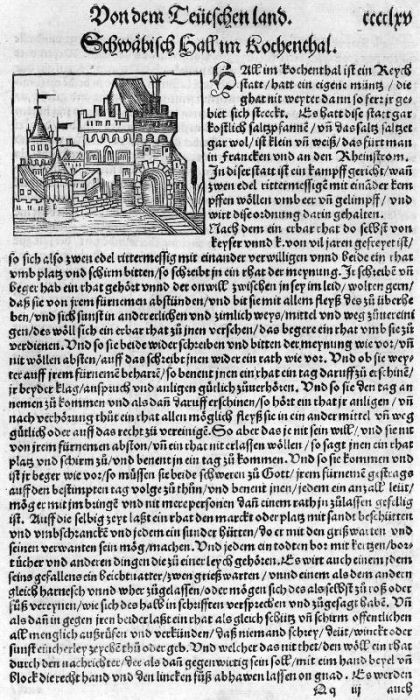 Von dem Teütschen land. cccclxv
Schwäbisch Hall im Kochenthal.
HAll im Kochenthal ist ein Reych
statt / hatt ein eigene müntz / die
ghat nit weyter dann so ferr jr ge⸗
biet sich streckt. Es hatt dise statt gar
kostlich saltzpfannē / vn̄ das saltz saltzet
gar wol / ist klein vn̄ weiß / das fürt man
in Francken vnd an den Rheinstrom.
In diser statt ist ein kampffgericht / wañ
zwen edel rittermessige mit eināder kem
pffen wöllen vmb eer vn̄ gelimpff / vnd
wirt dise ordnung darin gehalten.
Nach dem ein erbar rhat do selbst von
keyser vnnd k. von vil jaren gefreyet ist /
so sich also zwen edel rittermessig mit einander verwilligen vnnd beide ein rhat
vmb platz vnd schirm bitten / so schreibt jn ein rhat der meynung. Ir schreibē vn̄
beger hab ein rhat gehört vnnd der onwill zwischen jn sey im leid / wolten gern /
daß sie von jrem fürnemen abstünden / vnd bit sie mit allem fleyß des zů überhe
ben / vnd sich sunst in ander erlichen vnd zimlich weys / mittel vnd weg zů vereini
gen / des wöll sich ein erbar rhat zů jnen versehen / das begere ein rhat vmb sie zů
verdienen. Vnd so sie beide wider schreiben vnd bitten der meynung wie vor / vn̄
nit wöllen absten / auff das schreibt jnen wider ein rath wie vor. Vnd ob sie wey⸗
ter auff jrem fürnemē beharrē / so benent jnen ein rhat ein tag daruff zů erschinē /
jr beyder klag / anspruch vnd anligen gütlich zů verhören. Vnd so sie den tag an
nemen zů kommen vnd als dañ daruff erschinen / so hört ein rhat jr anligen / vn̄
nach verhörung thůt ein rhat allen möglich fleyß sie in ein ander mittel vn̄ weg
gütlich oder auff das recht zů vereinigē. So aber das je nit sein wil / vnd sie nit
von jrem fürnemen abston / vn̄ ein rhat nit erlassen wöllen / so sagt jnen ein rhat
platz vnd schirm zů / vnd benent jn ein tag zů kommen. Vnd so sie kommen vnd
ist jr beger wie vor / so müssen sie beide schweren zů Gott / jrem fürnemē
auff den bestimpten tag volge zů thůn / vnd benent jnen / jedem ein anzall leüt /
mög er mit jm bringē vnd nit mere personen dañ einem rath zů lassen gefellig
ist. Auff die selbig zeyt laßt ein rhat den marckt oder platz mit sandt beschütten
vnd vmbschrancken vnd jedem ein sunder hütten / do er mit den grißwarten vnd
seinen verwanten sein mög / machen. Vnd jedem ein todten bor mit kertzen / bor
tücher vnd anderen dingen die zů einer leych gehören. Es wirt auch einem jedem
seins gefallens ein beichtuatter / zwen grießwarten / vnnd einem als dem andern
gleich harnesch vnnd wher zů gelassen / oder mögen sich des als selbst zů roß oder
fůß vereynen / wie sich des hall in schrifften versprechen vnd zů gesagt haben. Vn̄
als dañ in gegen jren beider laßt ein rhat als gleich schütz vn̄ schirm offentlichen
allmenglich außrůfen vnd verkünden / daß niemand schrey / deüt / winckt oder
sunst eücherley zeychē thů oder geb. Vnd welcher das nit thet / den wöll ein rhat
durch den nachrichter / der als dañ gegenwürtig sein soll / mit eim hand beyel vn̄
block die recht hand vnd den lincken fůß abhawen lassen on gnad. Es werden
Qq iij auch